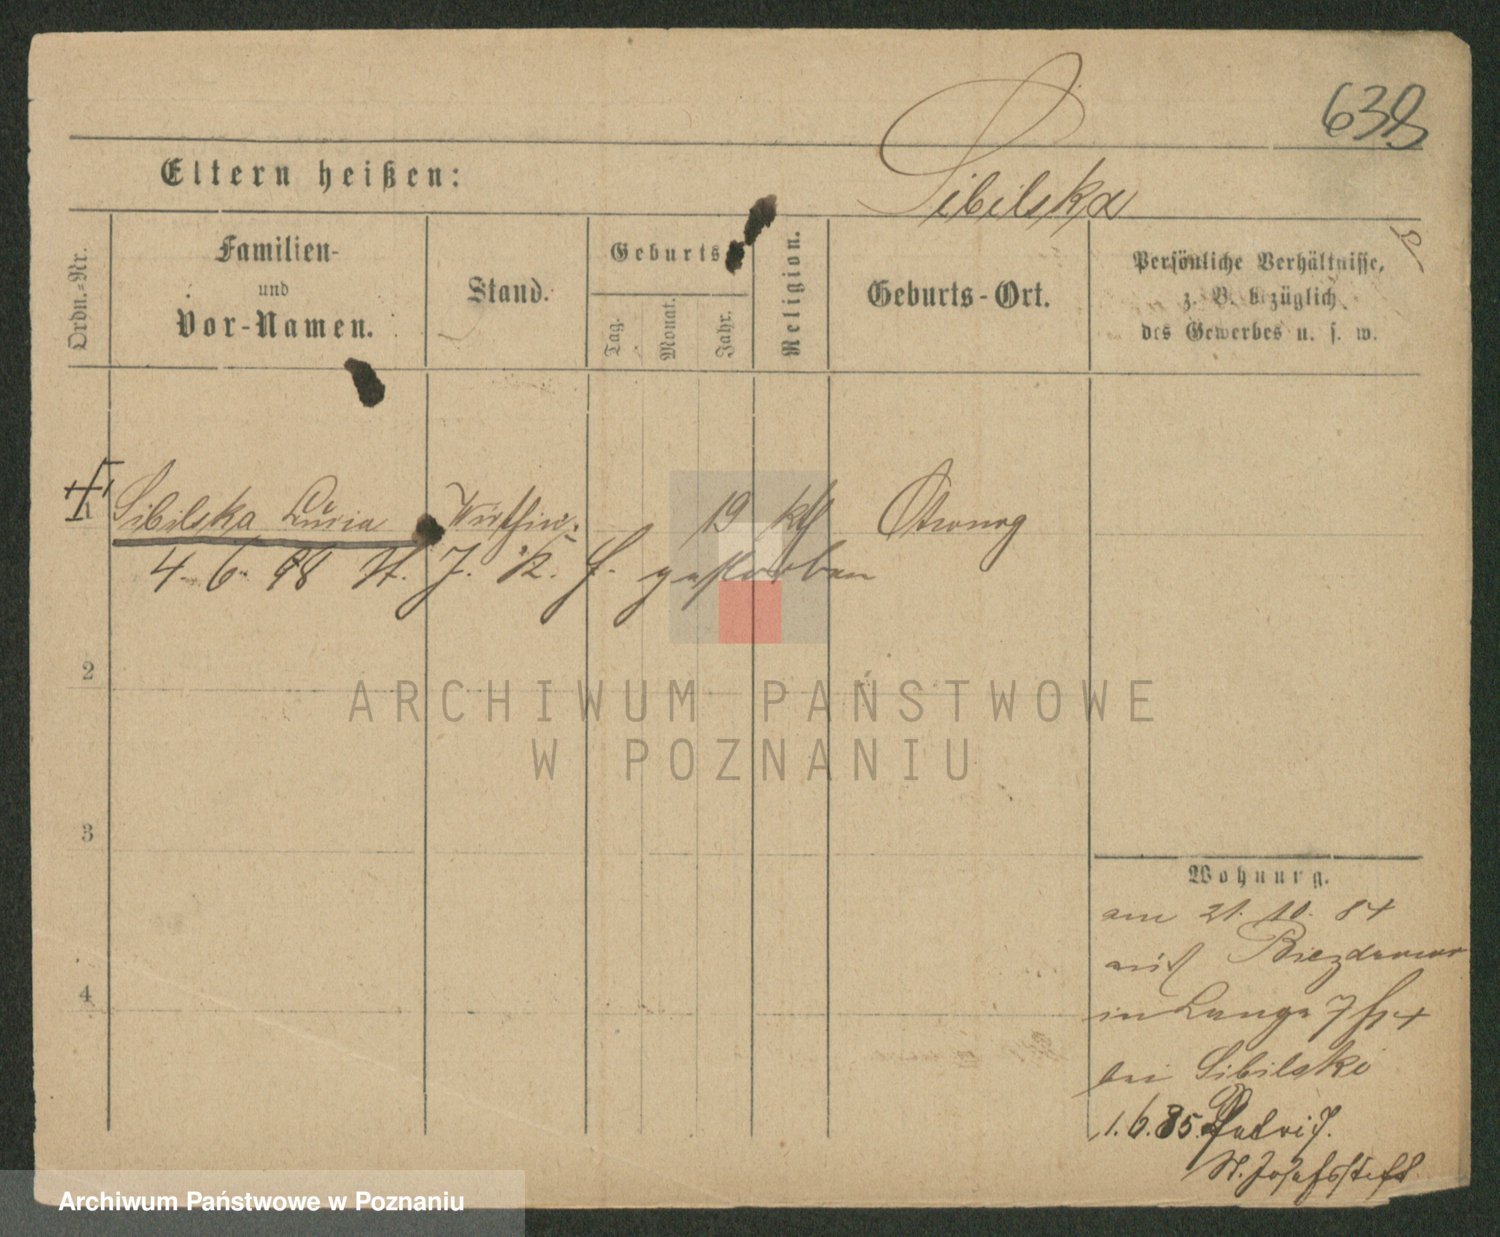 638
Eltern heißen:
Sibilska
Ordn.-Nr.
Familien-
und
Vor-Namen.
Stand.
Geburts
Tag.
Monat.
Jahr.
Religion.
Geburts-Ort.
Persönliche Verhältnisse,
z. B. bezüglich
des Gewerbes u. s. w.
1
Sibilska Lucia Wirthin. 19 kth
4. 6. 98 St. J. K. H. gestorben
2
ARCHIWUM PAŃSTWOWE
W POZNANIU
3
4
Wohnung.
am 21. 10. 84
aus
in Lange
bei Sibilski
1. 6. 85.
St. Josefsstift
Archiwum Państwowe w Poznaniu